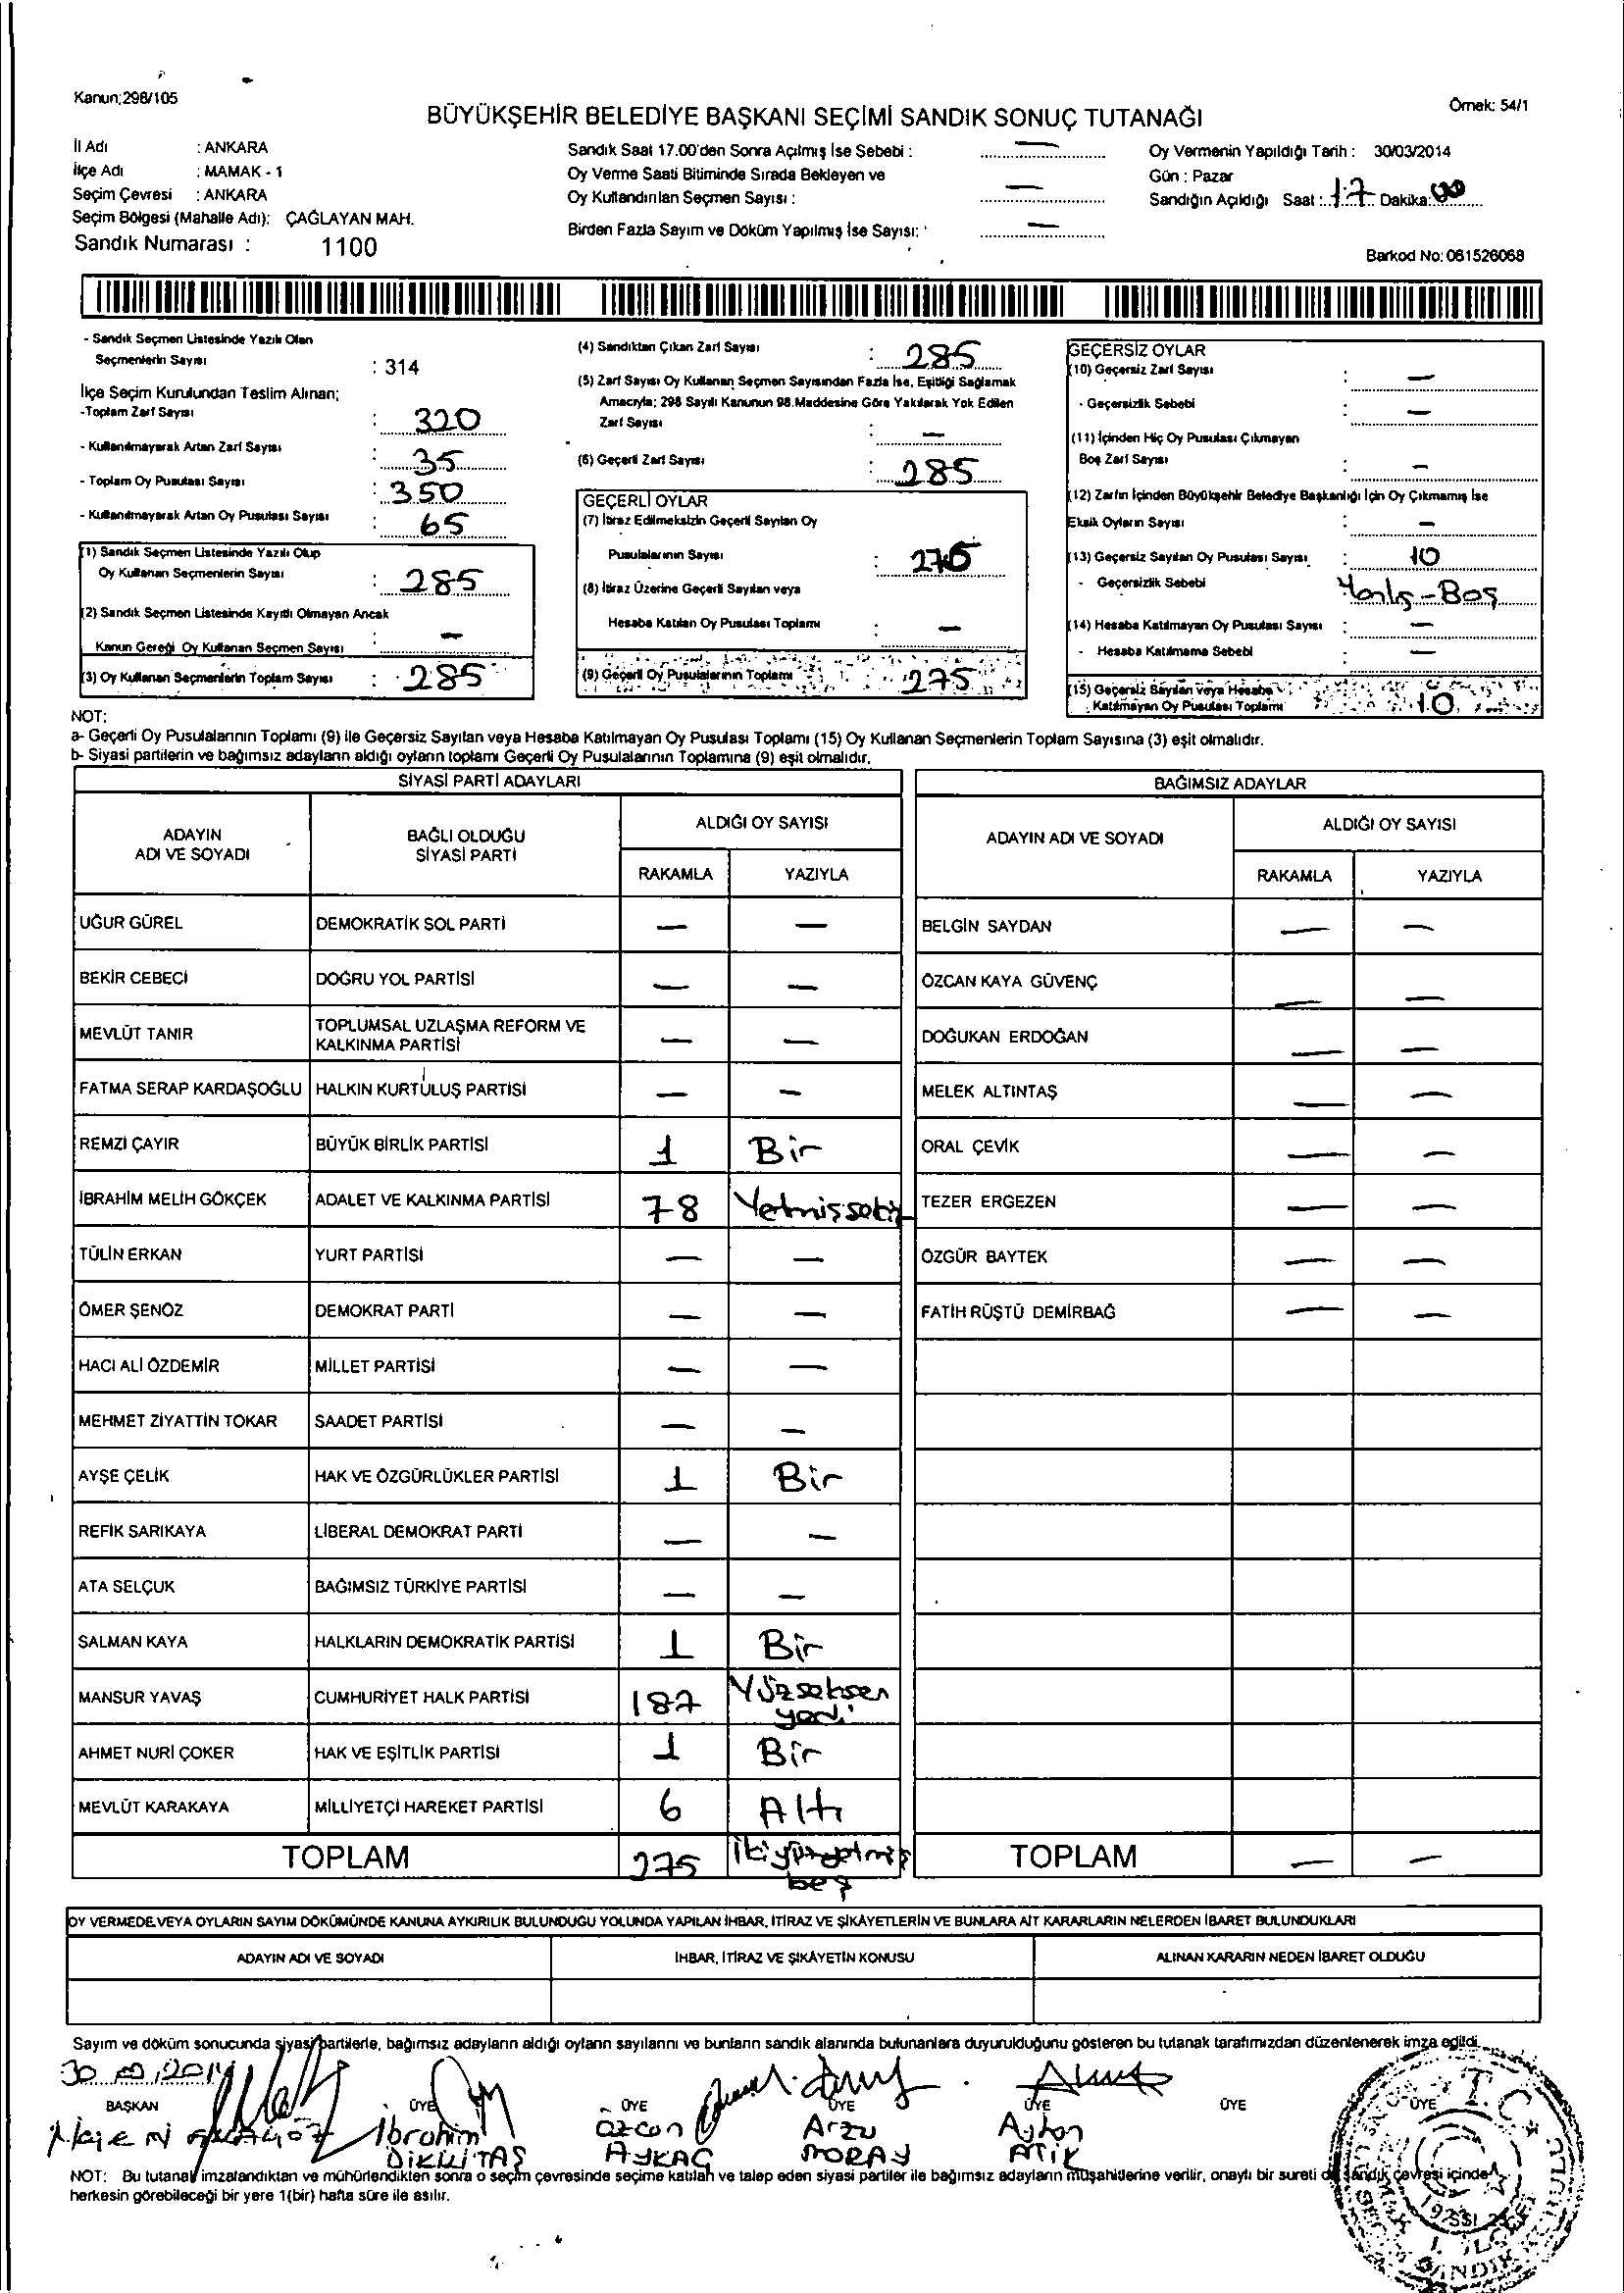 Kanun;298/105
Örnek: 54/1
BÜYÜKŞEHİR BELEDİYE BAŞKANI SEÇİMİ SANDIK SONUÇ TUTANAĞI
İl Adı : ANKARA
İlçe Adı : MAMAK - 1
Seçim Çevresi : ANKARA
Seçim Bölgesi (Mahalle Adı): ÇAĞLAYAN MAH.
Sandık Numarası : 1100
Sandık Saat 17.00'den Sonra Açılmış İse Sebebi : —
Oy Verme Saati Bitiminde Sırada Bekleyen ve
Oy Kullandırılan Seçmen Sayısı : —
Birden Fazla Sayım ve Döküm Yapılmış İse Sayısı: —
Oy Vermenin Yapıldığı Tarih : 30/03/2014
Gün : Pazar
Sandığın Açıldığı Saat : 17 Dakika: 00
Barkod No: 061526068
- Sandık Seçmen Listesinde Yazılı Olan
Seçmenlerin Sayısı : 314
İlçe Seçim Kurulundan Teslim Alınan;
-Toplam Zarf Sayısı : 320
- Kullanılmayarak Artan Zarf Sayısı : 35
- Toplam Oy Pusulası Sayısı : 350
- Kullanılmayarak Artan Oy Pusulası Sayısı : 65
(1) Sandık Seçmen Listesinde Yazılı Olup
Oy Kullanan Seçmenlerin Sayısı : 285
(2) Sandık Seçmen Listesinde Kayıtlı Olmayan Ancak
Kanun Gereği Oy Kullanan Seçmen Sayısı : —
(3) Oy Kullanan Seçmenlerin Toplam Sayısı : 285
(4) Sandıktan Çıkan Zarf Sayısı : 285
(5) Zarf Sayısı Oy Kullanan Seçmen Sayısından Fazla İse, Eşitliği Sağlamak
Amacıyla; 298 Sayılı Kanunun 98.Maddesine Göre Yakılarak Yok Edilen
Zarf Sayısı : —
(6) Geçerli Zarf Sayısı : 285
GEÇERLİ OYLAR
(7) İtiraz Edilmeksizin Geçerli Sayılan Oy
Pusulalarının Sayısı : 275
(8) İtiraz Üzerine Geçerli Sayılan veya
Hesaba Katılan Oy Pusulası Toplamı : —
(9) Geçerli Oy Pusulalarının Toplamı : 275
GEÇERSİZ OYLAR
(10) Geçersiz Zarf Sayısı : —
- Geçersizlik Sebebi : —
(11) İçinden Hiç Oy Pusulası Çıkmayan
Boş Zarf Sayısı : —
(12) Zarfın İçinden Büyükşehir Belediye Başkanlığı İçin Oy Çıkmamış İse
Eksik Oyların Sayısı : —
(13) Geçersiz Sayılan Oy Pusulası Sayısı : 10
- Geçersizlik Sebebi Yanlış - Boş
(14) Hesaba Katılmayan Oy Pusulası Sayısı : —
- Hesaba Katılmama Sebebi : —
(15) Geçersiz Sayılan veya Hesaba
Katılmayan Oy Pusulası Toplamı : 10
NOT:
a- Geçerli Oy Pusulalarının Toplamı (9) ile Geçersiz Sayılan veya Hesaba Katılmayan Oy Pusulası Toplamı (15) Oy Kullanan Seçmenlerin Toplam Sayısına (3) eşit olmalıdır.
b- Siyasi partilerin ve bağımsız adayların aldığı oyların toplamı Geçerli Oy Pusulalarının Toplamına (9) eşit olmalıdır.
SİYASİ PARTİ ADAYLARI
ADAYIN ADI VE SOYADI BAĞLI OLDUĞU SİYASİ PARTİ ALDIĞI OY SAYISI
RAKAMLA YAZIYLA
UĞUR GÜREL DEMOKRATİK SOL PARTİ — —
BEKİR CEBECİ DOĞRU YOL PARTİSİ — —
MEVLÜT TANIR TOPLUMSAL UZLAŞMA REFORM VE KALKINMA PARTİSİ — —
FATMA SERAP KARDAŞOĞLU HALKIN KURTULUŞ PARTİSİ — —
REMZİ ÇAYIR BÜYÜK BİRLİK PARTİSİ 1 Bir
İBRAHİM MELİH GÖKÇEK ADALET VE KALKINMA PARTİSİ 78 Yetmişsekiz
TÜLİN ERKAN YURT PARTİSİ — —
ÖMER ŞENÖZ DEMOKRAT PARTİ — —
HACI ALİ ÖZDEMİR MİLLET PARTİSİ — —
MEHMET ZİYATTİN TOKAR SAADET PARTİSİ — —
AYŞE ÇELİK HAK VE ÖZGÜRLÜKLER PARTİSİ 1 Bir
REFİK SARIKAYA LİBERAL DEMOKRAT PARTİ — —
ATA SELÇUK BAĞIMSIZ TÜRKİYE PARTİSİ — —
SALMAN KAYA HALKLARIN DEMOKRATİK PARTİSİ 1 Bir
MANSUR YAVAŞ CUMHURİYET HALK PARTİSİ 187 Yüzseksen yedi
AHMET NURİ ÇOKER HAK VE EŞİTLİK PARTİSİ 1 Bir
MEVLÜT KARAKAYA MİLLİYETÇİ HAREKET PARTİSİ 6 Altı
TOPLAM 275 İkiyüzyetmiş beş
BAĞIMSIZ ADAYLAR
ADAYIN ADI VE SOYADI ALDIĞI OY SAYISI
RAKAMLA YAZIYLA
BELGİN SAYDAN — —
ÖZCAN KAYA GÜVENÇ — —
DOĞUKAN ERDOĞAN — —
MELEK ALTINTAŞ — —
ORAL ÇEVİK — —
TEZER ERGEZEN — —
ÖZGÜR BAYTEK — —
FATİH RÜŞTÜ DEMİRBAĞ — —
TOPLAM — —
OY VERMEDE VEYA OYLARIN SAYIM DÖKÜMÜNDE KANUNA AYKIRILIK BULUNDUĞU YOLUNDA YAPILAN İHBAR, İTİRAZ VE ŞİKÂYETLERİN VE BUNLARA AİT KARARLARIN NELERDEN İBARET BULUNDUKLARI
ADAYIN ADI VE SOYADI İHBAR, İTİRAZ VE ŞİKÂYETİN KONUSU ALINAN KARARIN NEDEN İBARET OLDUĞU
Sayım ve döküm sonucunda siyasi partilerle, bağımsız adayların aldığı oyların sayılarını ve bunların sandık alanında bulunanlara duyurulduğunu gösteren bu tutanak tarafımızdan düzenlenerek imza edildi.
30.03.2014
BAŞKAN ÜYE ÜYE ÜYE ÜYE ÜYE ÜYE
İbrahim Özcan Arzu Ayhan
DİKİLİTAŞ AYKAÇ MORAY ATİK
NOT: Bu tutanak imzalandıktan ve mühürlendikten sonra o seçim çevresinde seçime katılan ve talep eden siyasi partiler ile bağımsız adayların müşahitlerine verilir, onaylı bir sureti de sandık çevresi içinde
herkesin görebileceği bir yere 1(bir) hafta süre ile asılır.
T.C.